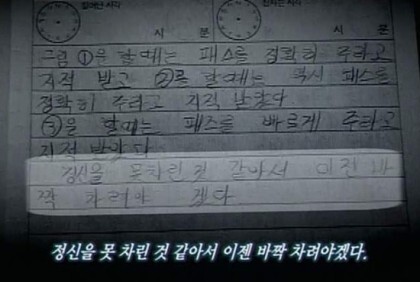 시 분 시 분
그림 ①을 할때는 패스를 정확히 주라고
지적 받고 ②를 할때는 역시 패스를
정확히 주라고 지적 받았다.
③을 할때는 패스를 빠르게 주라고
지적 받았다
정신을 못차린 것 같아서 이젠 바
짝 차려야 겠다
정신을 못 차린 것 같아서 이젠 바짝 차려야겠다.